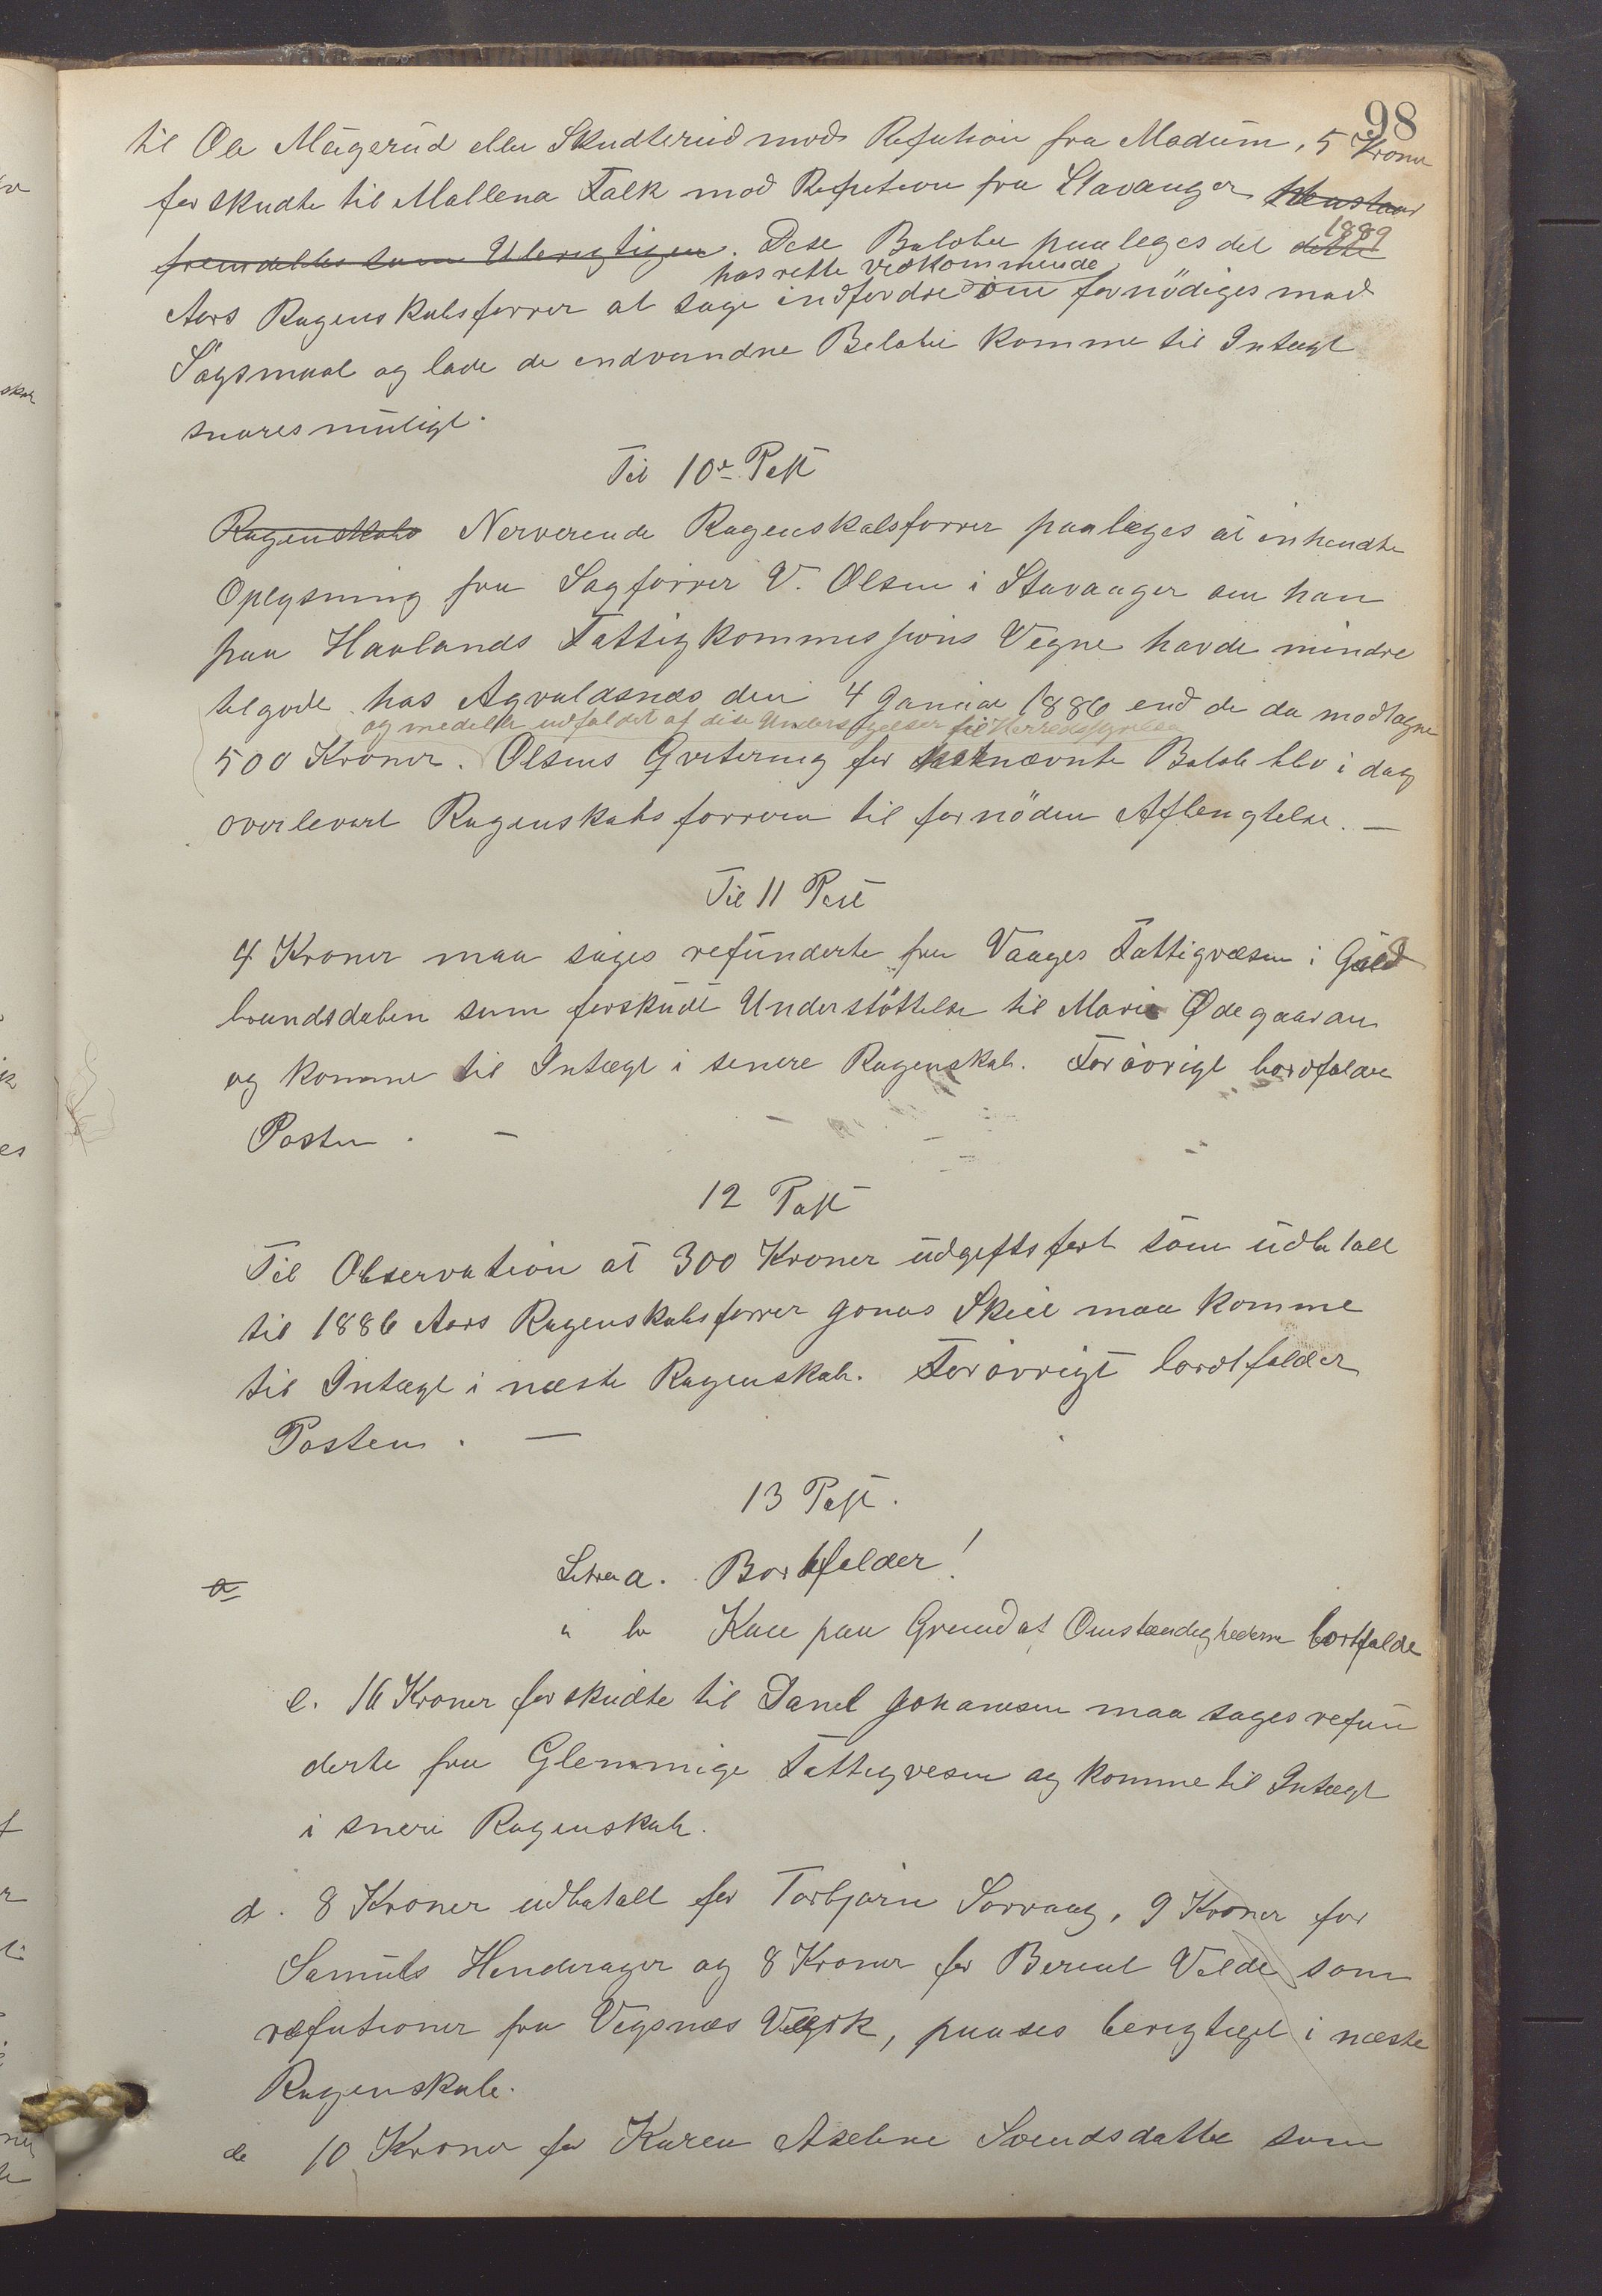 98
til Ole Mügerud eller Skudterud mods Refution fra Modum, 5 Kroner
forskudte til Mallena Falk mod Refution fra Stavanger
fremdelles som Uberigtigen. Dese Belöbe paaleges det dette 1889
hos rette vedkommende
Aars Regenskabsförrer at söge indfordre om fornödiges med
Sögsmaal og lade de indvundne Belöbe komme til Intægt
snares muligt.
Til 10de Post
Regenskabs Nerverende Regenskabsförrer paalæges at inhendte
Oplysning fra Sagförrer V. Olsen i Stavanger om han
paa Haalands Fattigkommissions Vegne havde mindre
tilgode hos Agvaldsnæs den 4 Januar 1886 end de da modtagne
og medelte udfaldet af dise Undersögelser til Herredsstyrelsen
500 Kroner. Olsens Qvitering for nævnte Belöb blev i dag
overlevert Regenskabsförreren til fornöden Afbenÿtelse. —
Til 11 Post
4 Kroner maa söges refunderte fra Vaages Fattigvæsen i Guld
brandsdalen som forskudt Understöttelse til Marie Ødegaarden
og komme til Intægt i senere Regenskab. Forövrigt bordfalder
Posten. —
12 Post
Til Observation at 300 Kroner udgiftsfört som udbetalt
til 1886 Aars Regenskabsförrer Jonas Skeie maa komme
til Intægt i næste Regenskab. Forövrigt bordtfalder
Posten. —
13 Post.
a
Litra a. Bortfalder!
" b Kan paa Grund af Omstændighederne bortfalde
c. 16 Kroner forskudte til Danel Johannesen maa söges refun
derte fra Glemmige Fattigvesen og komme til Intægt
i snere Regenskab.
d. 8 Kroner udbetalt for Torbjörn Sörvaag, 9 Kroner for
Samuels Henderager og 8 Kroner for Berent Velde som
refutioner fra Vigsnæs Værk, paases berigtiget i næste
Regenskab.
de 10 Kroner for Karen Aseline Svendsdatter som